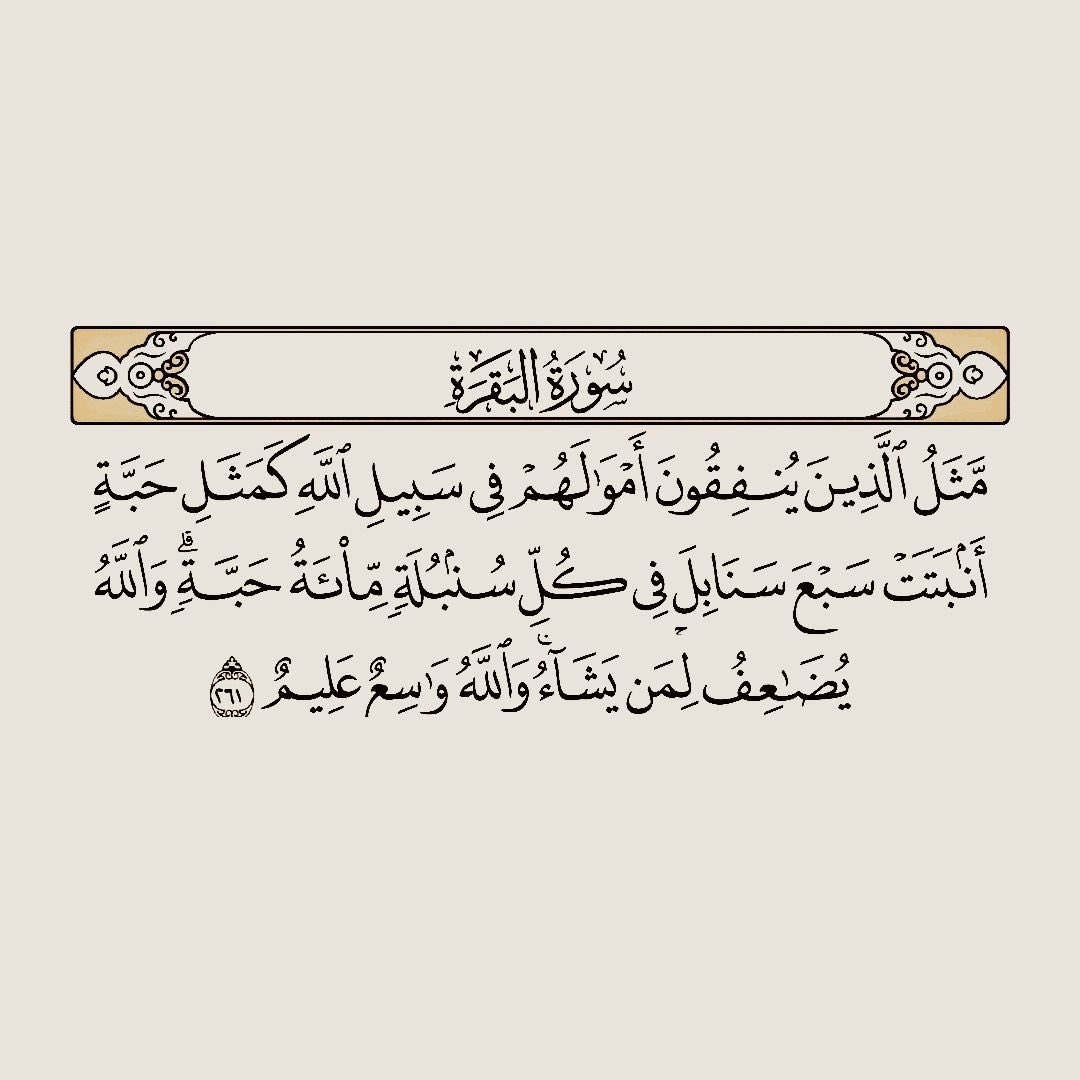 سُورَةُ البَقَرَةِ
مَّثَلُ ٱلَّذِينَ يُنفِقُونَ أَمْوَٰلَهُمْ فِى سَبِيلِ ٱللَّهِ كَمَثَلِ حَبَّةٍ
أَنۢبَتَتْ سَبْعَ سَنَابِلَ فِى كُلِّ سُنۢبُلَةٍ مِّا۟ئَةُ حَبَّةٍ ۗ وَٱللَّهُ
يُضَٰعِفُ لِمَن يَشَآءُ ۗ وَٱللَّهُ وَٰسِعٌ عَلِيمٌ ٢٦١